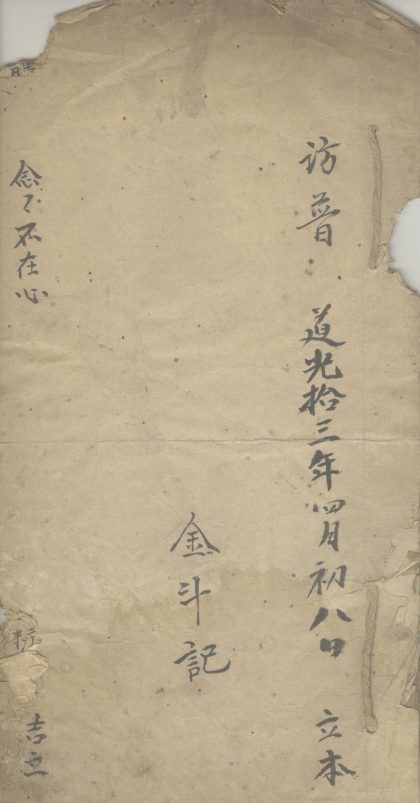 訪普 道光拾三年四月初八日 立本
金斗記
念〻不在心
吉立